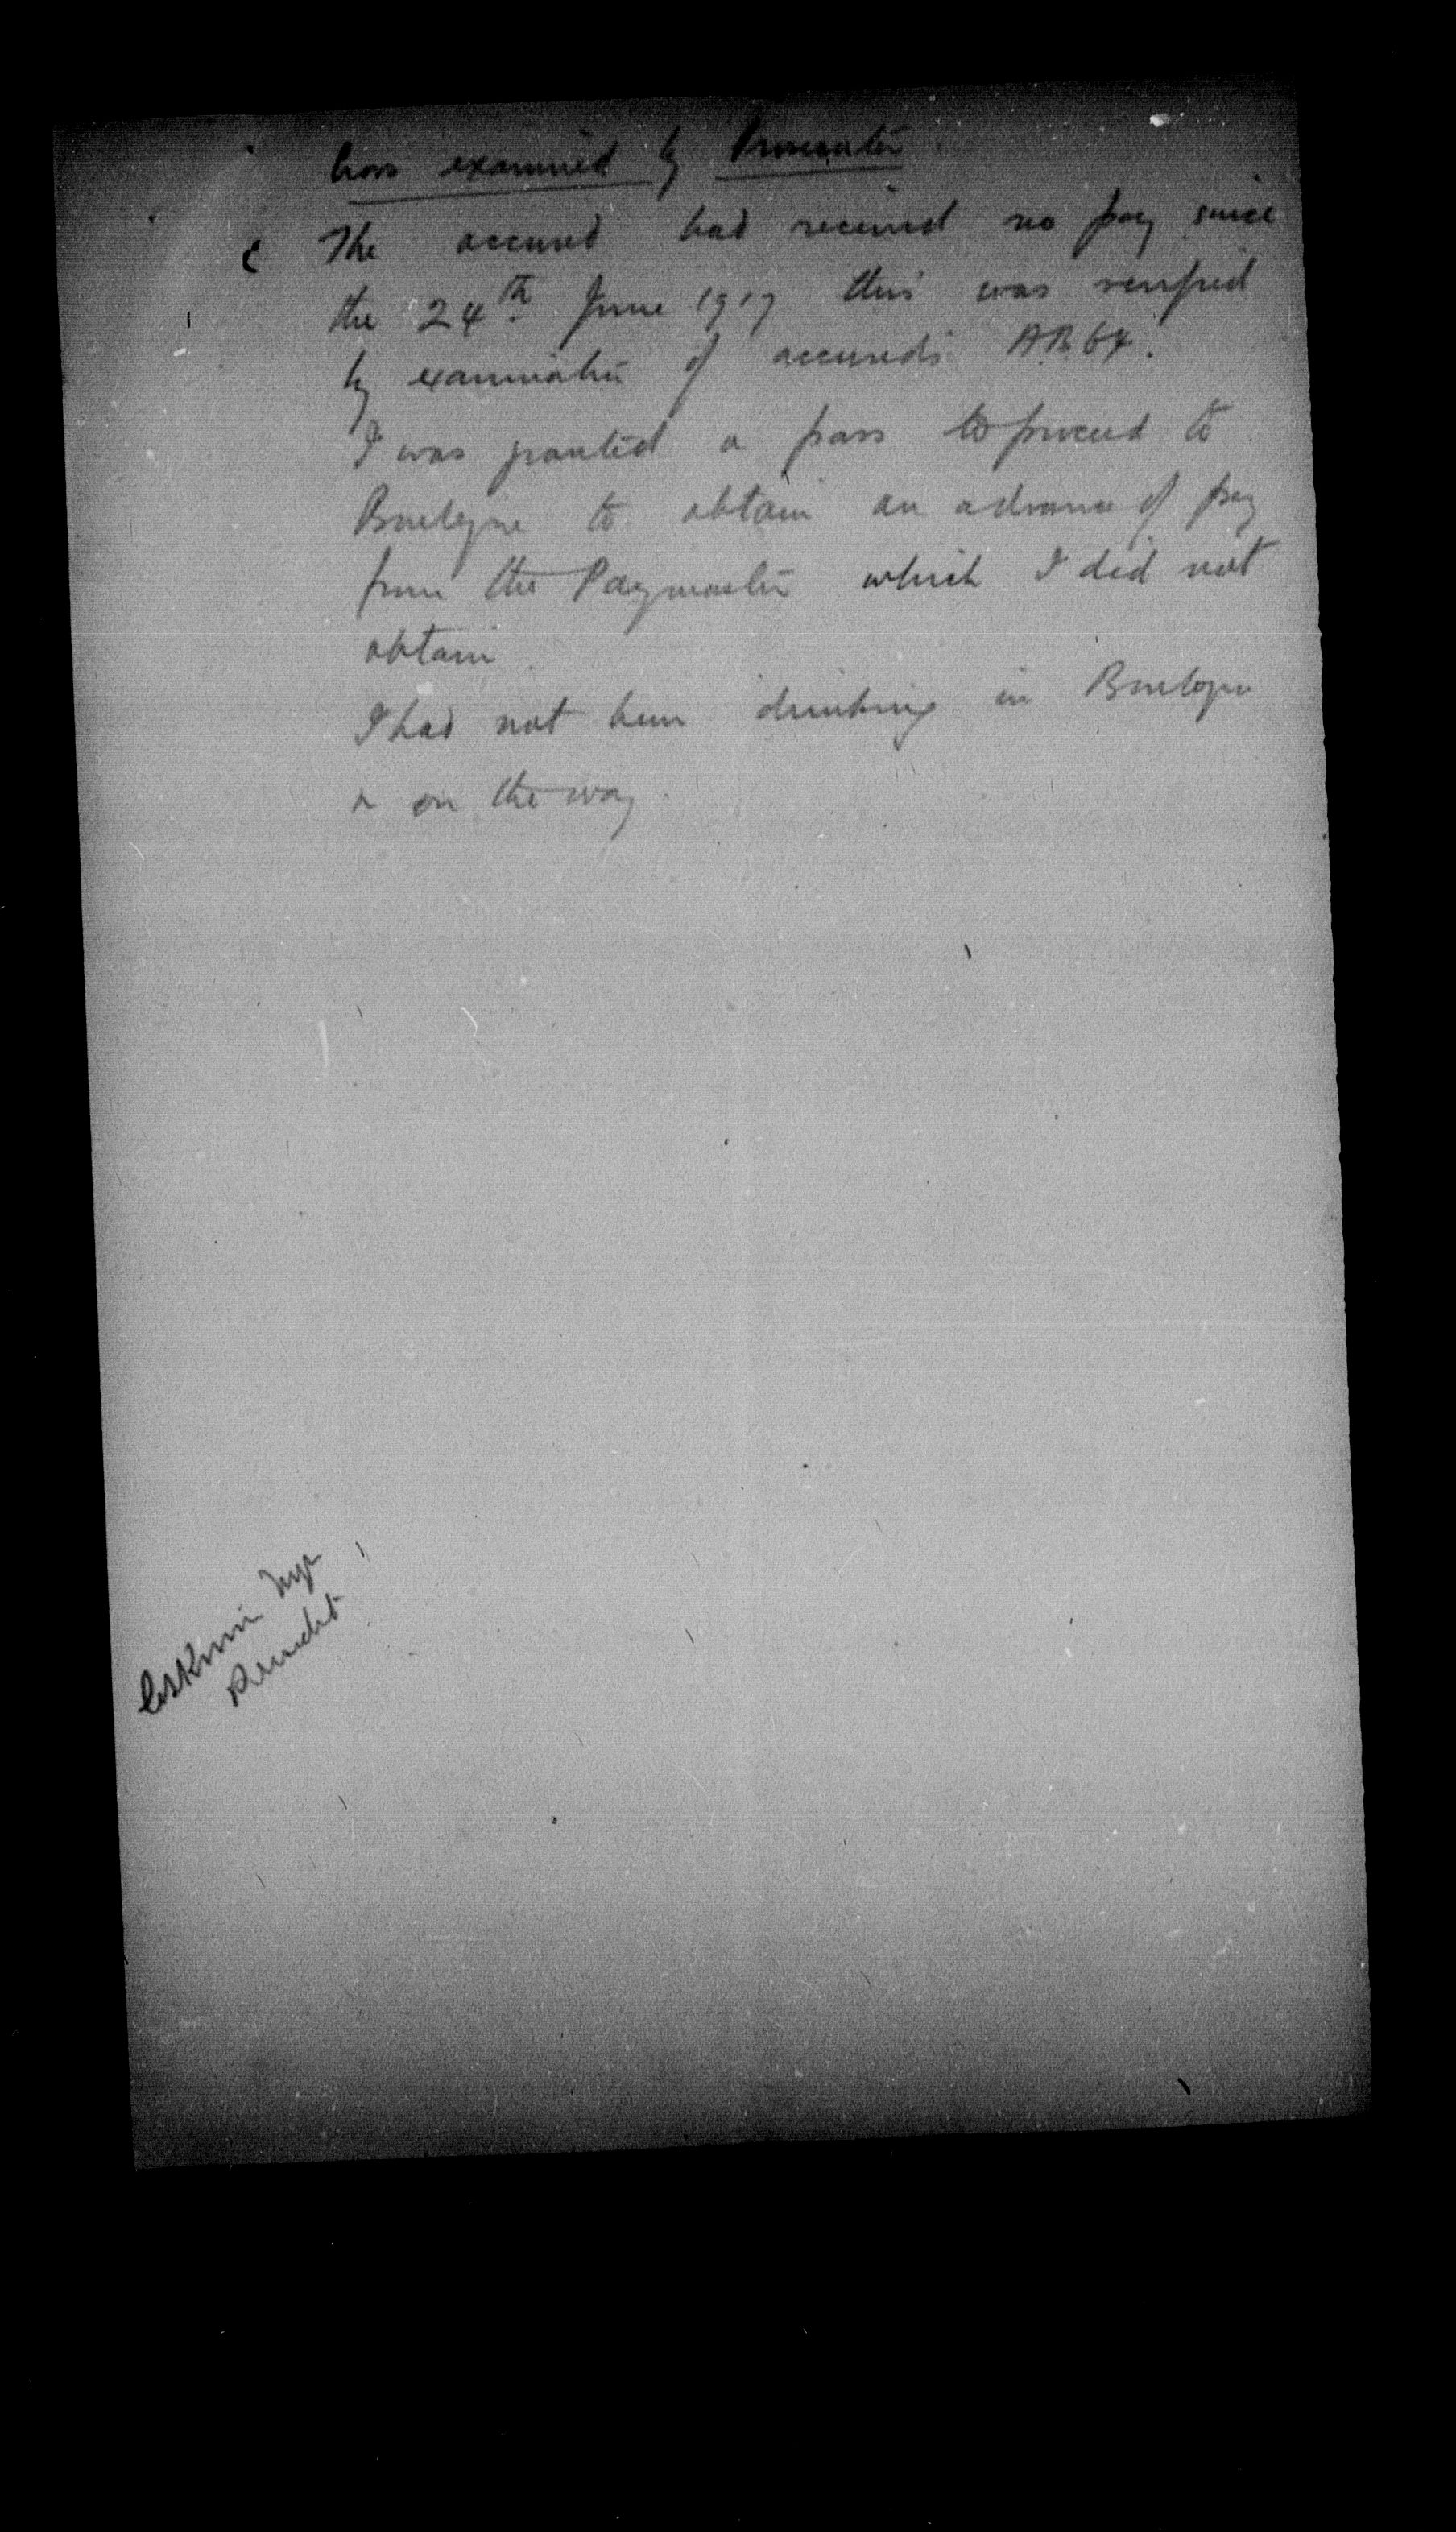 Cross examined by Prosecutor
The accused had received no pay since
the 24th June 1917 this was verified
by examination of accused's AB 64.
I was granted a pass to proceed to
Boulogne to obtain an advance of pay
from the Paymaster which I did not
obtain.
I had not been drinking in Boulogne
or on the way.
Major
President